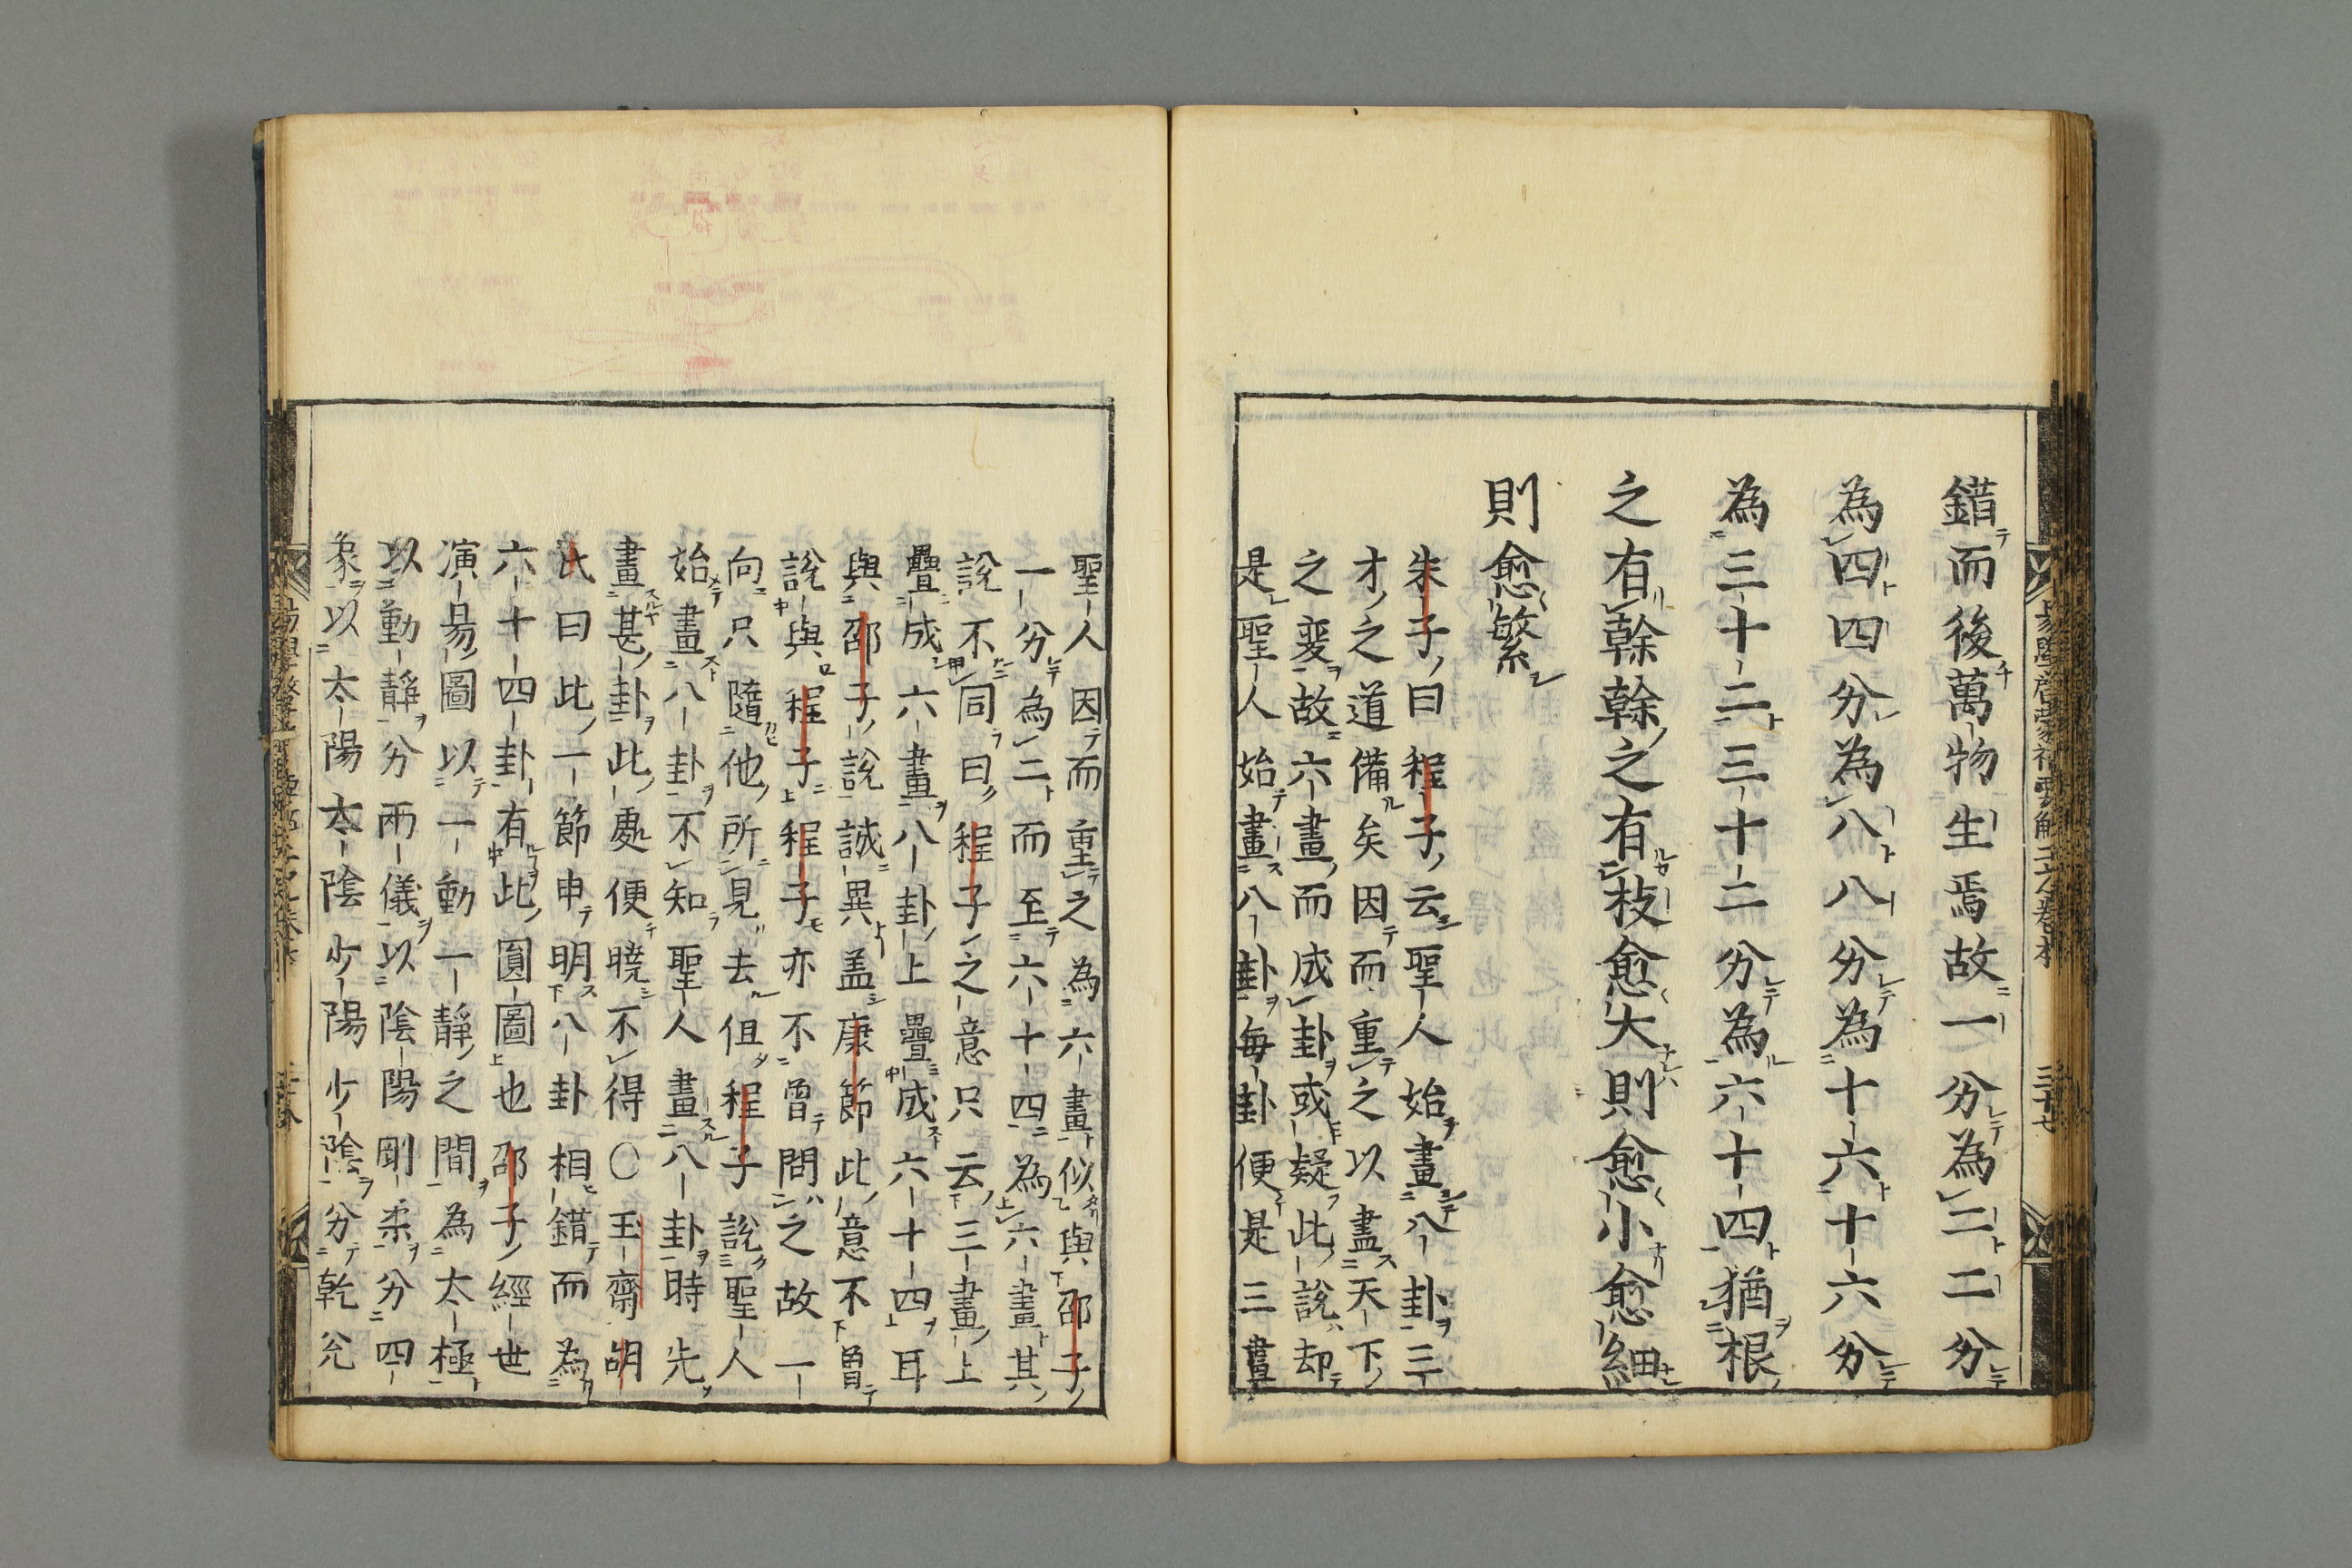 錯而後萬物生焉故一分為二二分
為四四分為八八分為十六十六分
為三十二三十二分為六十四猶根
之有幹幹之有枝愈大則愈小愈細
則愈繁
朱子曰程子云聖人始畫八卦三
才之道備矣因而重之以盡天下
之変故六畫而成卦或疑此說却
是聖人始畫八卦每卦便是三畫
聖人因而重之為六畫似與邵子
一分為二而至六十四為六畫其
說不同曰程子之意只云三畫上
疊成六畫八卦上疊成六十四耳
與邵子說誠異盖康節此意不曾
說與程子程子亦不曾問之故一
向只隨他所見去但程子說聖人
始畫八卦不知聖人畫八卦時先
畫甚卦此處便曉不得〇玉齋胡
氏曰此一節申明八卦相錯而為
六十四卦有此圓圖也邵子經世
演昜圖以一動一靜之間為太極
以動靜分兩儀以陰陽剛柔分四
象以太陽太陰少陽少陰分乾兊